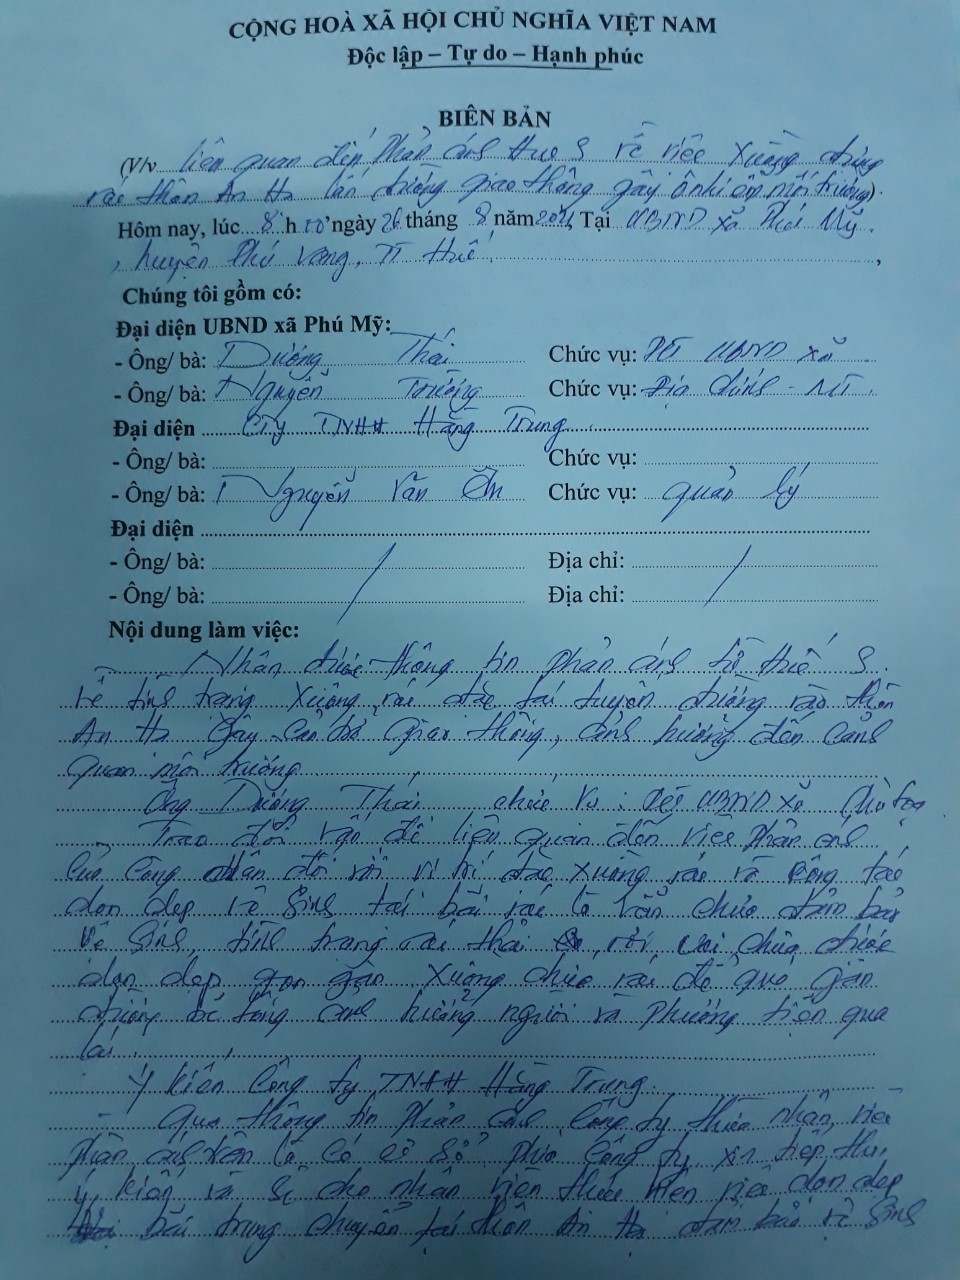 CỘNG HOÀ XÃ HỘI CHỦ NGHĨA VIỆT NAM
Độc lập – Tự do – Hạnh phúc
BIÊN BẢN
(V/v liên quan đến phản ánh Hue S về việc Xuồng đựng
rác thôn An Hạ lấn đường giao thông gây ô nhiễm môi trường).
Hôm nay, lúc 8 h 00 'ngày 26 tháng 8 năm 2021, Tại UBND xã Phú Mỹ,
, huyện Phú Vang, TT Huế. ,
Chúng tôi gồm có:
Đại diện UBND xã Phú Mỹ:
- Ông/ bà: Dương Thái Chức vụ: PCT UBND xã
- Ông/ bà: Nguyễn Trường Chức vụ: Địa chính - MT
Đại diện Cty TNHH Hằng Trung
- Ông/ bà: Chức vụ:
- Ông/ bà: Nguyễn Văn Chức vụ: quản lý
Đại diện
- Ông/ bà: / Địa chỉ: /
- Ông/ bà: Địa chỉ:
Nội dung làm việc:
- Nhận được thông tin phản ánh từ Huế S.
về tình trạng xuồng rác đặt tại tuyến đường vào thôn
An Hạ gây cản trở giao thông, ảnh hưởng đến cảnh
quan môi trường
Ông Dương Thái chức vụ: PCT UBND xã Chủ tọa
Trao đổi vấn đề liên quan đến việc phản ánh
của công dân đối với vị trí đặt xuồng rác và công tác
dọn dẹp vệ sinh tại bãi rác là vẫn chưa đảm bảo
vệ sinh, tình trạng rác thải rơi vãi chưa được
dọn dẹp gọn gàn xuồng chứa rác để quá gần
đường bê tông ảnh hưởng người và phương tiện qua
lại.
Ý kiến Công ty TNHH Hằng Trung.
- Qua thông tin phản ánh, Công ty thừa nhận việc
phản ánh trên là có cơ sở, phía Công ty xin tiếp thu
ý kiến và sẽ cho nhân viên thực hiện việc dọn dẹp
bãi trung chuyển tại thôn An Hạ đảm bảo vệ sinh